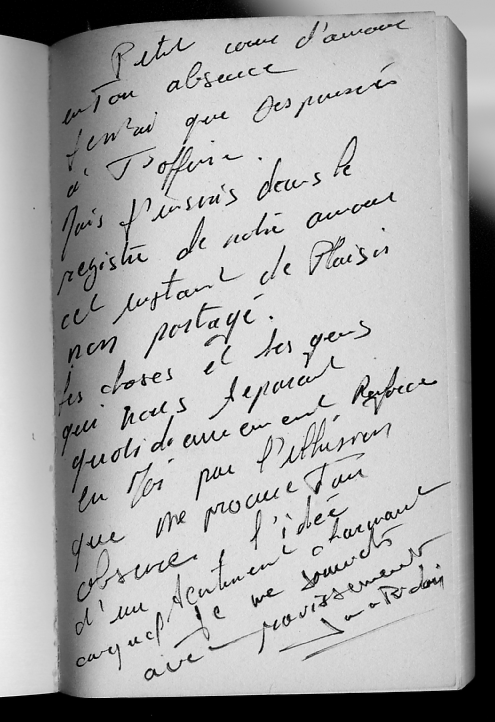 Petit cœur d'amour
en Ton absence
Je n'ai que des pensées
à T'offrir.
Mais j'inscris dans le
registre de notre amour
cet instant de Plaisir
non partagé.
Les choses et les gens
qui nous séparent
quotidiennement Renforce
en Moi par l'illusion
que me procure Ton
absence l'idée
d'un sentiment charmant
auquel Je me soumets
avec ravissement